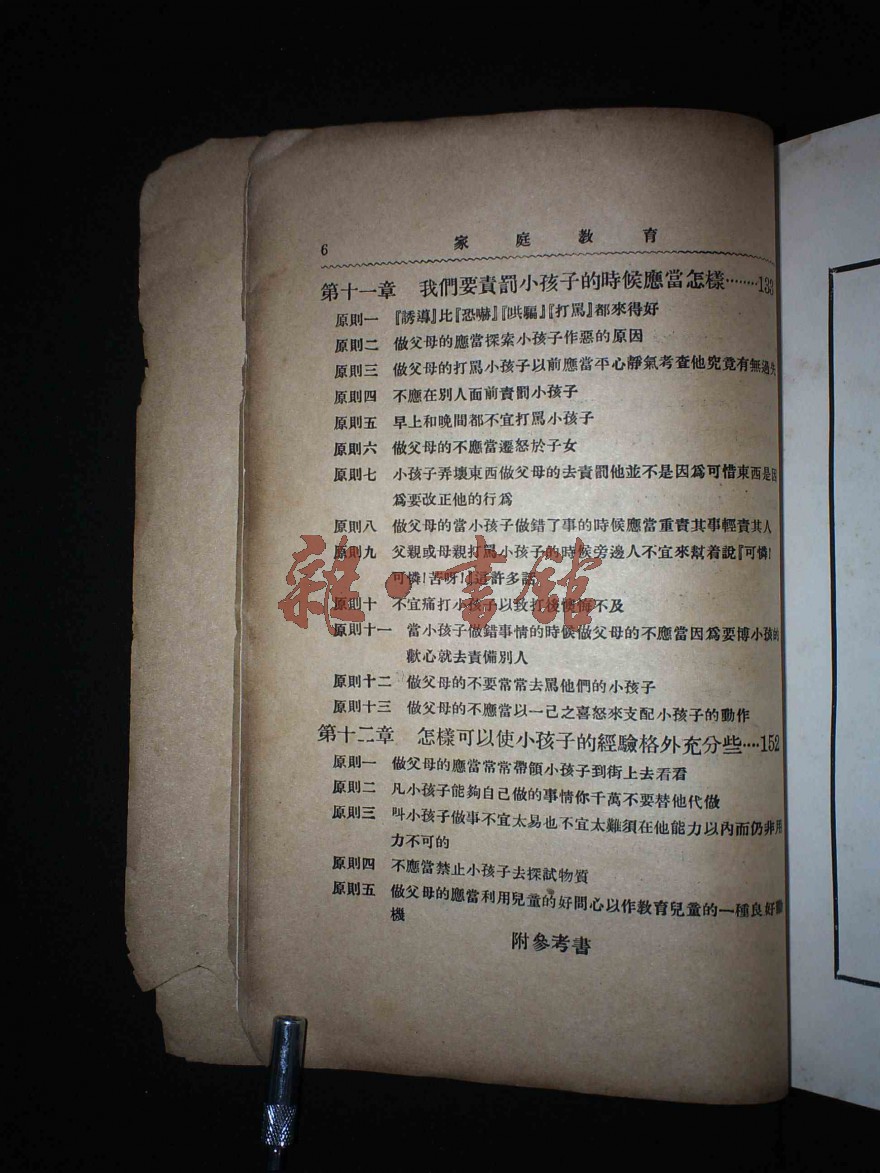 6 家庭教育
第十一章 我們要責罰小孩子的時候應當怎樣········133
原則一 『誘導』比『恐嚇』『哄騙』『打罵』都來得好
原則二 做父母的應當探索小孩子作惡的原因
原則三 做父母的打罵小孩子以前應當平心靜氣考查他究竟有無過失
原則四 不應在別人面前責罰小孩子
原則五 早上和晚間都不宜打罵小孩子
原則六 做父母的不應當遷怒於子女
原則七 小孩子弄壞東西做父母的去責罰他並不是因爲可惜東西是因
爲要改正他的行爲
原則八 做父母的當小孩子做錯了事的時候應當重責其事輕責其人
原則九 父親或母親打罵小孩子的時候旁邊人不宜來幫着說『可憐!
可憐!苦呀!』這許多話
原則十 不宜痛打小孩子以致打後懊悔不及
原則十一 當小孩子做錯事情的時候做父母的不應當因爲要博小孩的
歡心就去責備別人
原則十二 做父母的不要常常去罵他們的小孩子
原則十三 做父母的不應當以一己之喜怒來支配小孩子的動作
第十二章 怎樣可以使小孩子的經驗格外充分些····152
原則一 做父母的應當常常帶領小孩子到街上去看看
原則二 凡小孩子能夠自己做的事情你千萬不要替他代做
原則三 叫小孩子做事不宜太易也不宜太難須在他能力以內而仍非用
力不可的
原則四 不應當禁止小孩子去探試物質
原則五 做父母的應當利用兒童的好問心以作教育兒童的一種良好動
機
附參考書
雜·書館